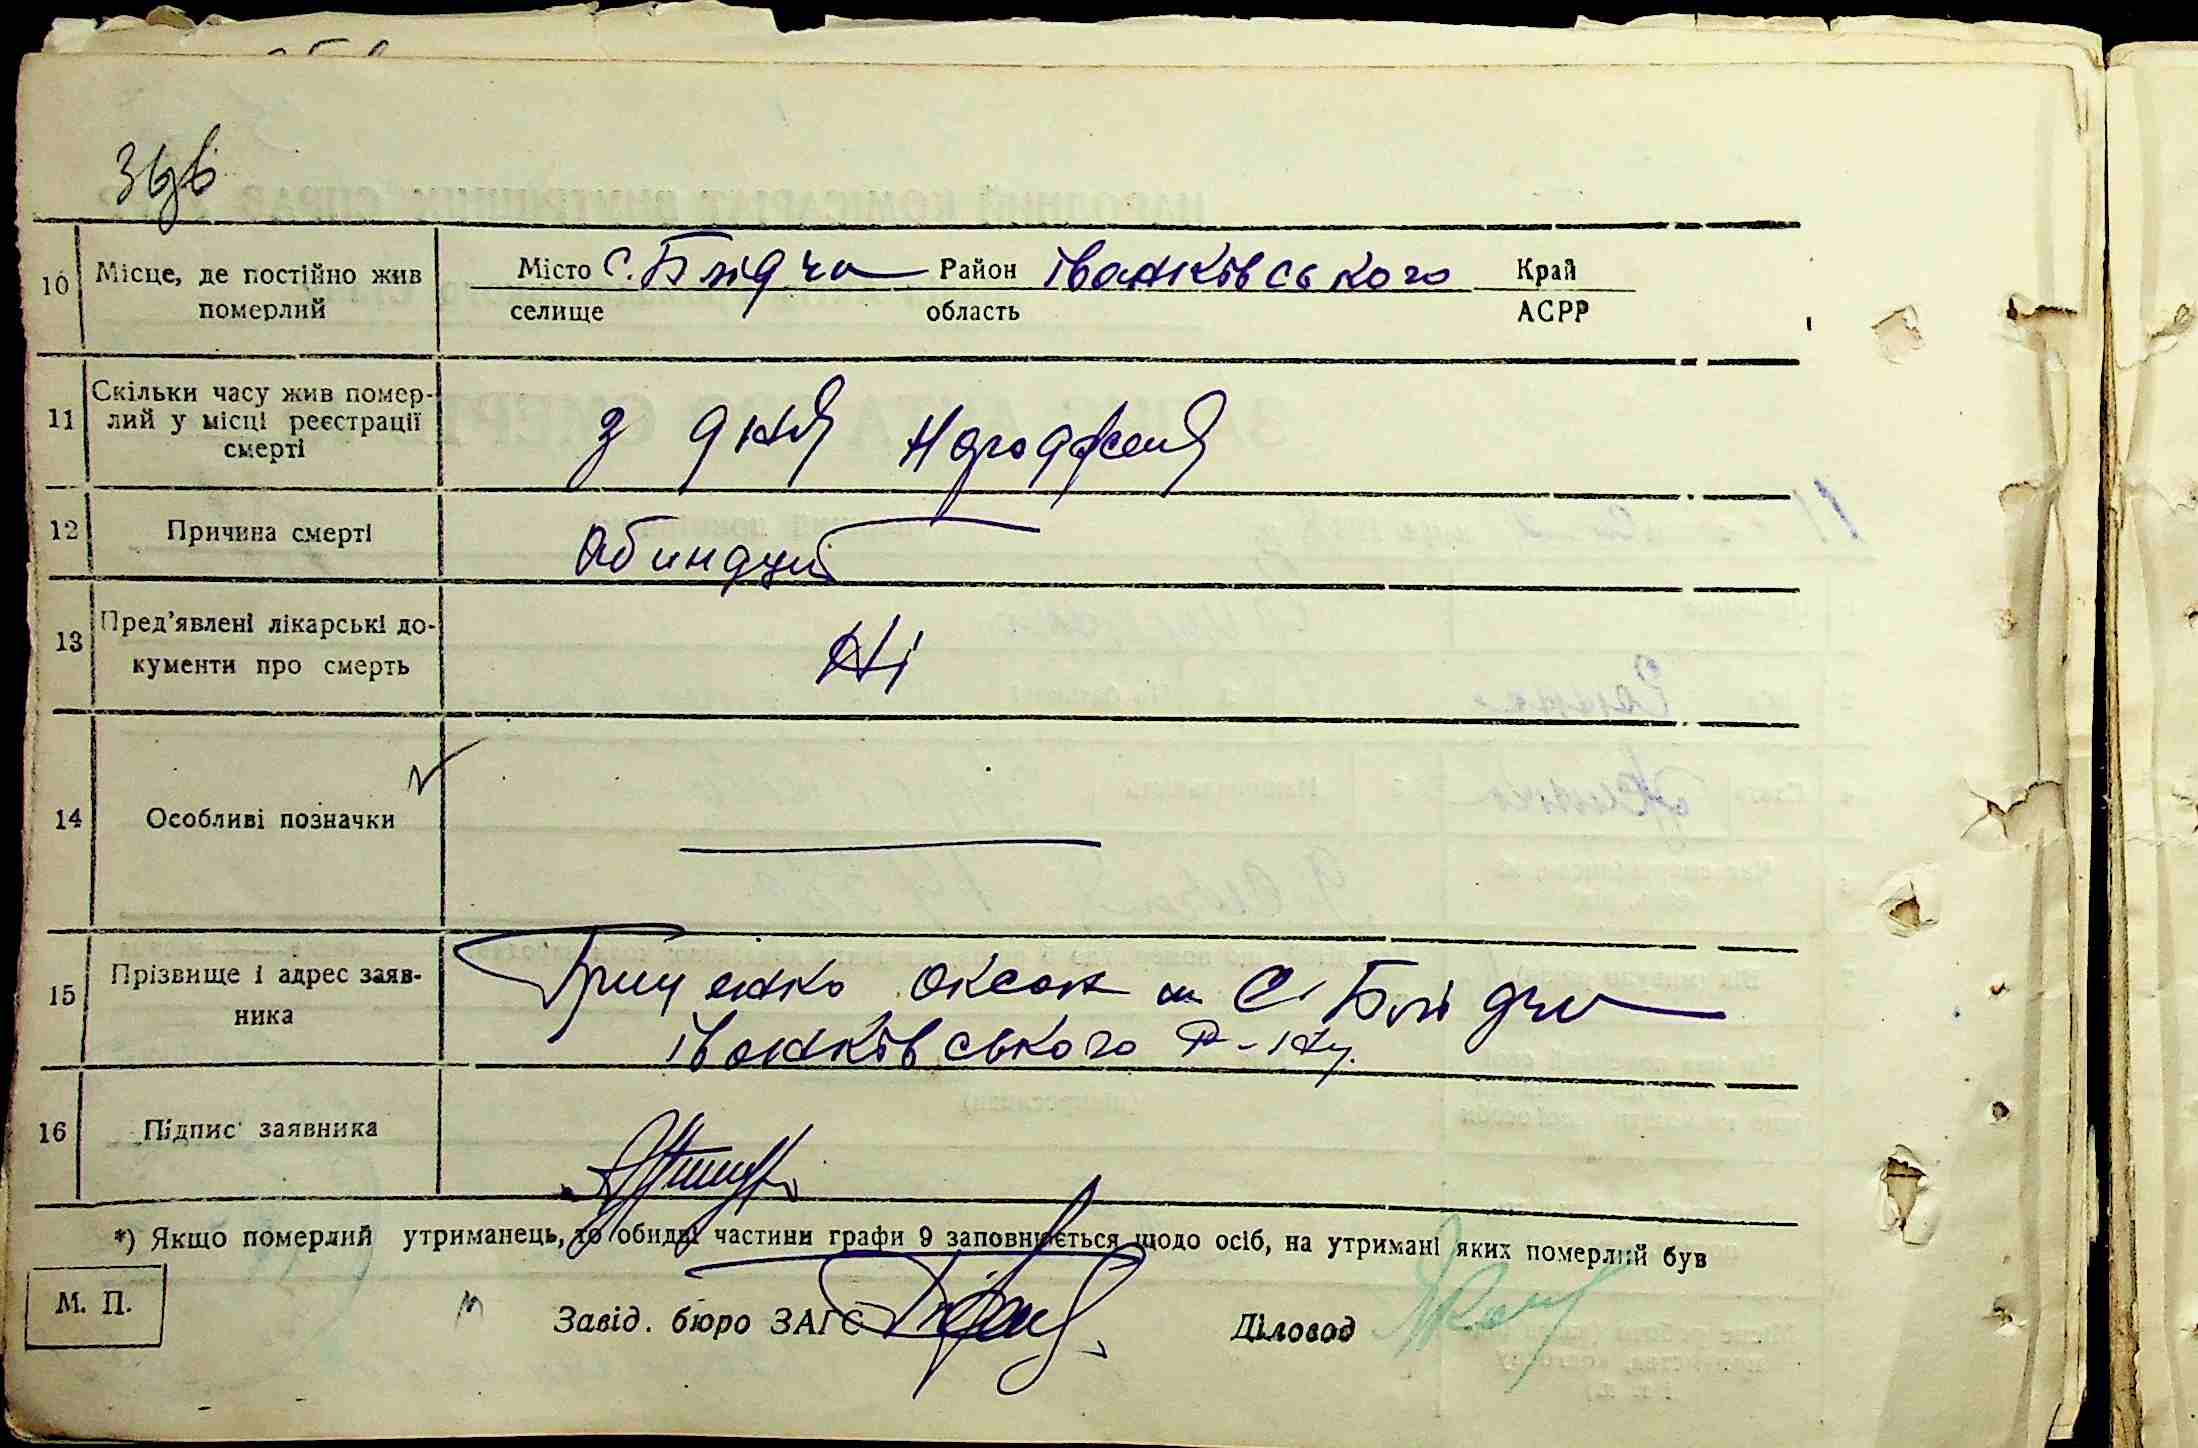 36 зв
10 Місце, де постійно жив померлий
Місто с. Блідча Район Іванківського Край
селище область АСРР
11 Скільки часу жив помер-
лий у місці реєстрації
смерті
з дня народженя
12 Причина смерті
13 Пред'явлені лікарські до-
кументи про смерть
Ні
14 Особливі позначки
15 Прізвище і адрес заяв-
ника
Грищенко Оксана с. Блідча
Іванківського р-ну.
16 Підпис заявника
*) Якщо померлий утриманець, то обидві частини графи 9 заповнюється щодо осіб, на утримані яких померлий був
М. П.
Завід. бюро ЗАГС Діловод